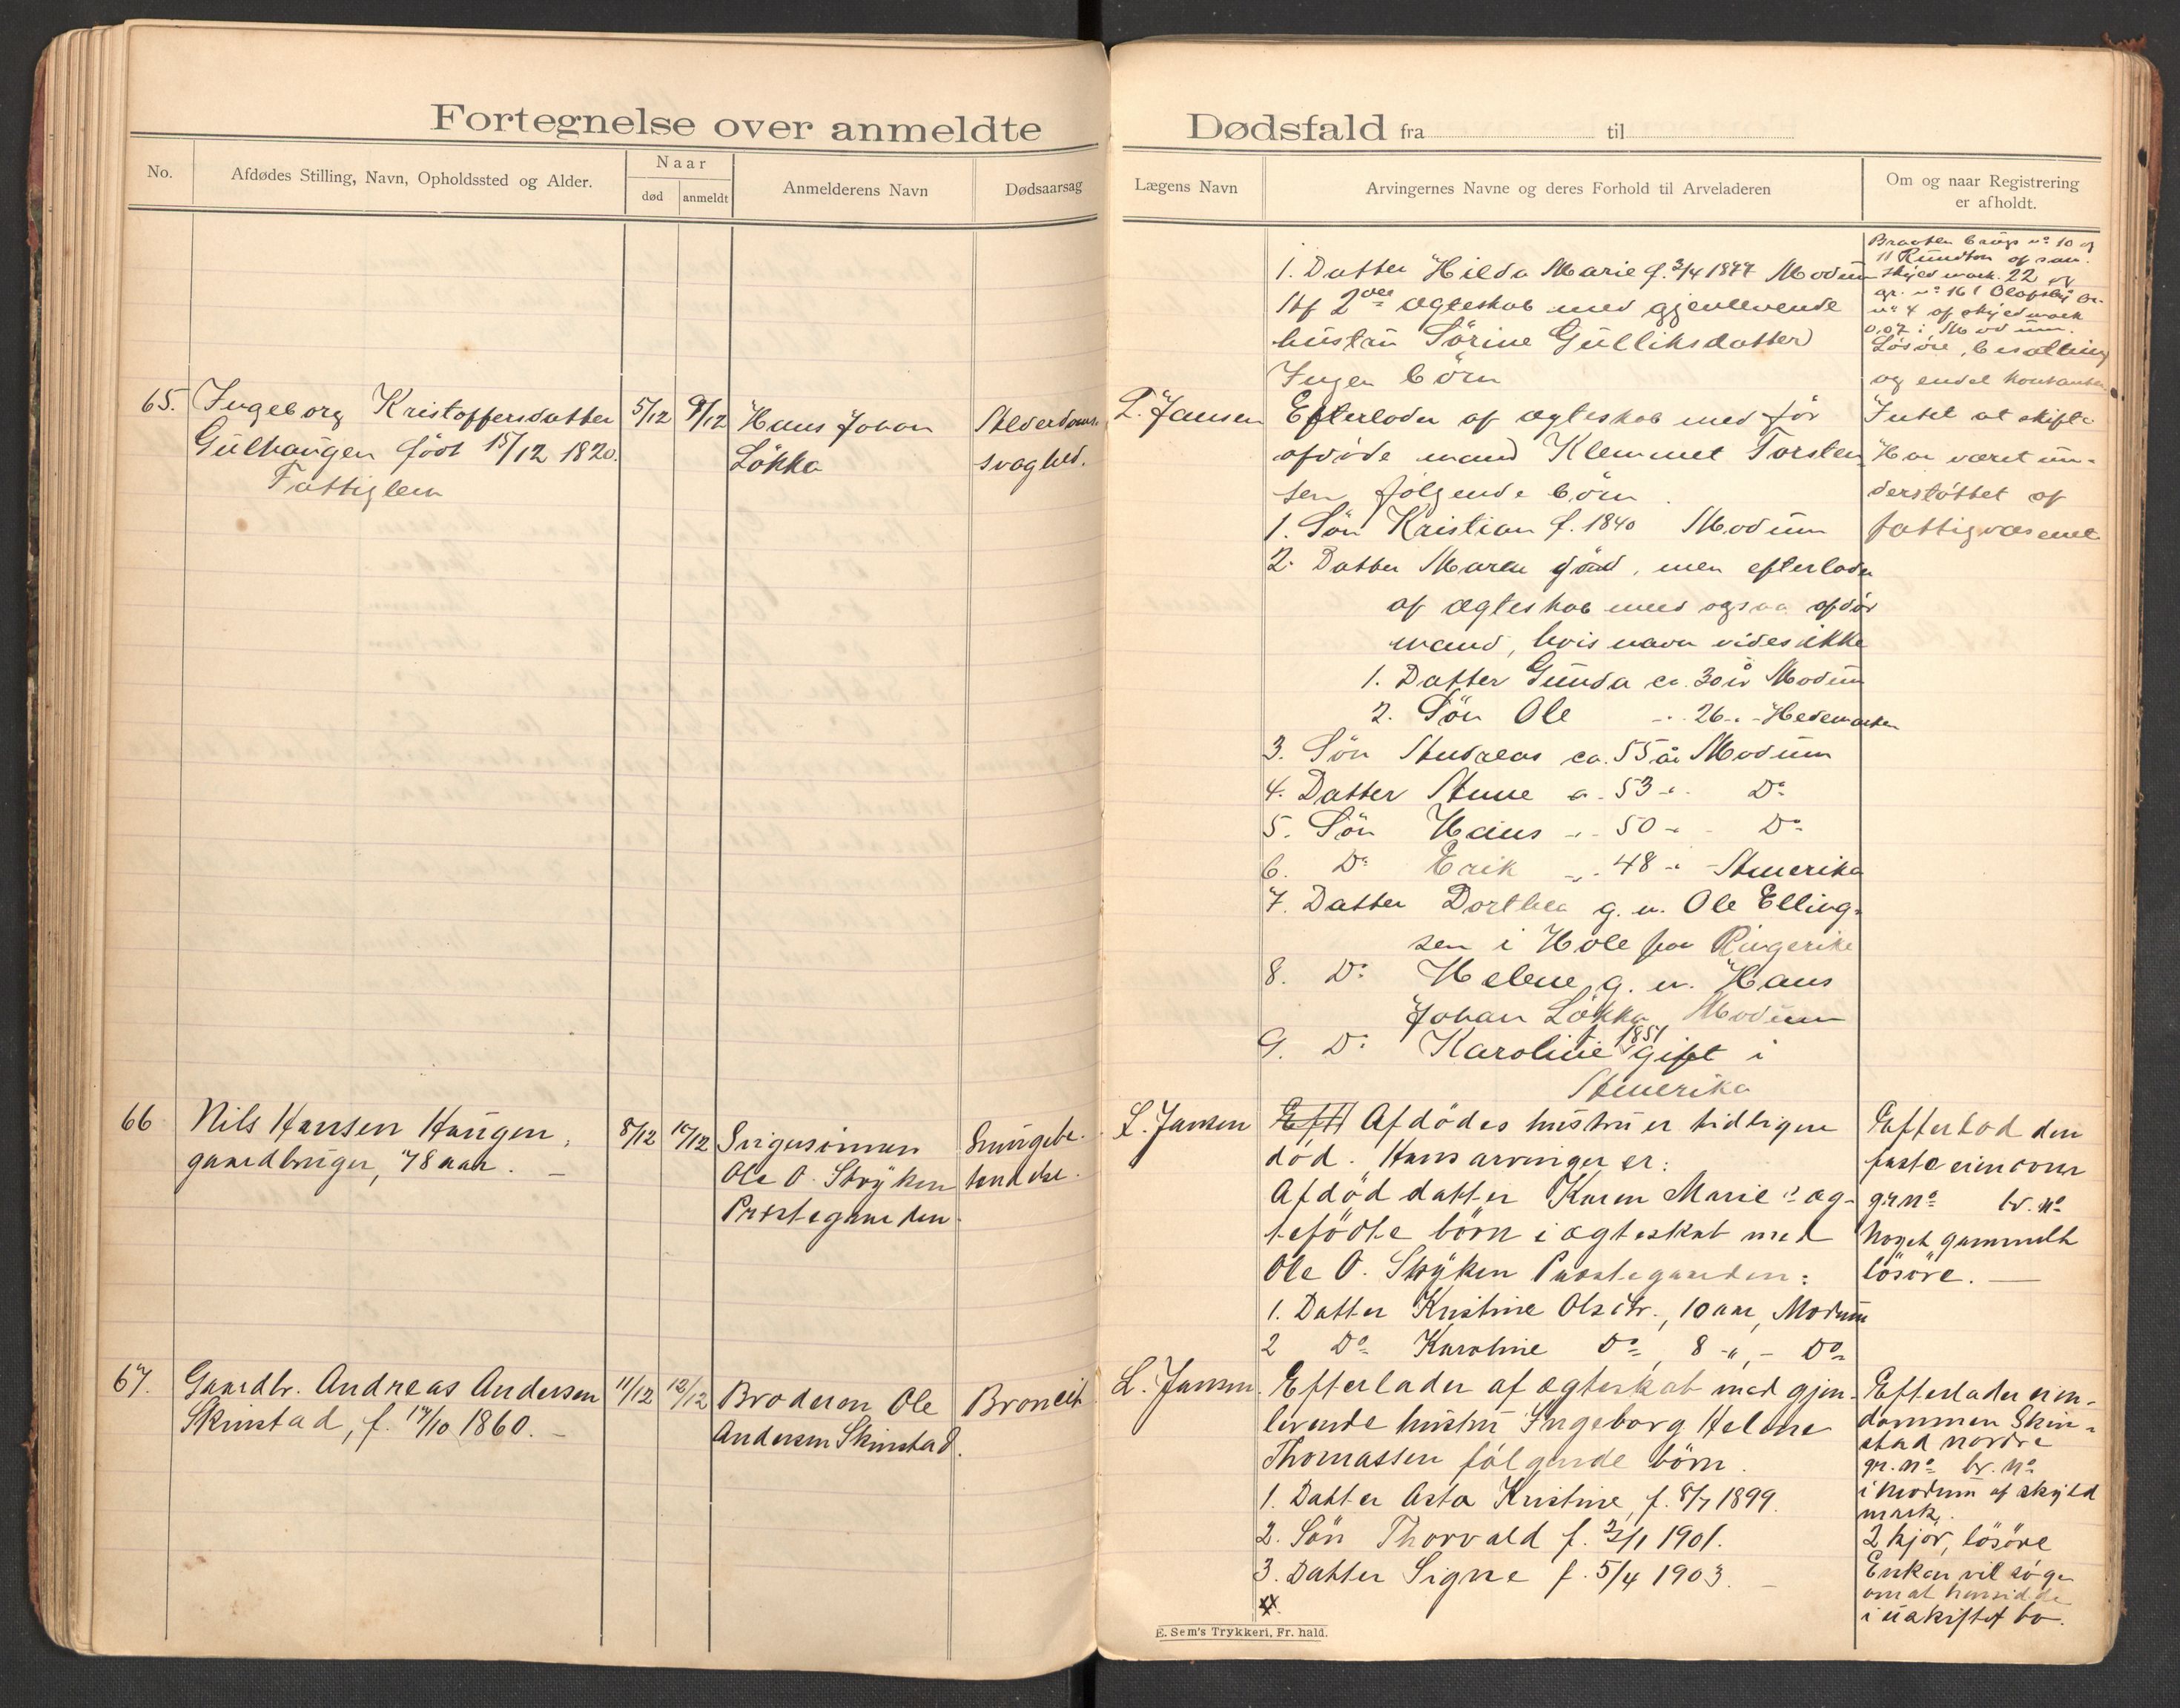 Fortegnelse over anmeldte
No.
Afdødes Stilling, Navn, Opholdssted og Alder.
Naar
død
anmeldt
Anmelderens Navn
Dødsaarsag
65. Ingeborg Kristoffersdatter 5/12 9/12 Hans Johan Alderdoms-
Gulhaugen født 15/12 1820. Løkka svaghed.
Fattiglem
66 Nils Hansen Haugen, 8/12 10/12 Svigersønnen Lungebe-
gaardbruger, 78 aar. — Ole O. Stryken tændelse.
Præstegaarden.
67. Gaardbr. Andreas Andersen 11/12 12/12 Broderen Ole Broncit
Skinstad, f. 17/10 1860. — Andersen Skinstad.
Dødsfald fra til
Lægens Navn
Arvingernes Navne og deres Forhold til Arveladeren
Om og naar Registrering
er afholdt.
1. Datter Hilda Marie f. 3/4 1877 Modum
Af 2det ægteskab med gjenlevende
hustru Sørine Gulliksdatter
Ingen børn
Braaten brugs no 10 og
11
skyld mark. 22
no 4 af skyld mark
0,07 i Modum.
Løsøre, besætning
og endel kontanter
L. Jansen Efterlader af ægteskab med før
afdøde mand Klemmet Torsten
sen følgende børn.
1. Søn Kristian f. 1840 Modum
2. Datter Maren død, men efterlader
af ægteskab med ogsaa afdød
mand, hvis navn vides ikke
1. Datter Gunda ca. 30 år Modum
2. Søn Ole -.- 26 -.- Hedemarken
3. Søn Andreas ca. 55 år Modum
4. Datter Anne -.- 53 -.- Do
5. Søn Hans -.- 50 -.- Do
6. Do Erik -.- 48 -.- Amerika
7. Datter Dorthea g. m. Ole Elling-
sen i Hole paa Ringerike
8. Do Helene g. m. Hans
Johan Løkka Modum
9. Do Karoline f 1851 gift i
Amerika
Intet at skifte
Har været un-
derstøttet af
fattigvæsenet
L. Jansen Eftl Afdødes hustru er tidligere
død. Hans arvinger er:
Afdød datter Karen Marie's æg-
tefødte børn i ægteskab med
Ole O. Stryken Præstegaarden:
1. Datter Kristine Olsdtr., 10 aar, Modum
2 Do Karoline Do, 8 -"- Do
Efterlod den
faste eiendom
gr. no br. no
Noget gammelt
løsøre. —
L. Jansen. Efterlader af ægteskab med gjen-
levende hustru Ingeborg Helene
Thomassen følgende børn.
1. Datter Asta Kristine, f. 8/7 1899.
2. Søn Thorvald f. 2/1 1901.
3. Datter Signe f. 5/4 1903. —
Efterlader eien-
dommen Skin-
stad nordre
gr. no br. no
i Modum af skyld
mark.
2 kjør, løsøre
Enken vil søge
om at hensidde
i uskiftet bo.
E. Sem's Trykkeri, Fr. hald.